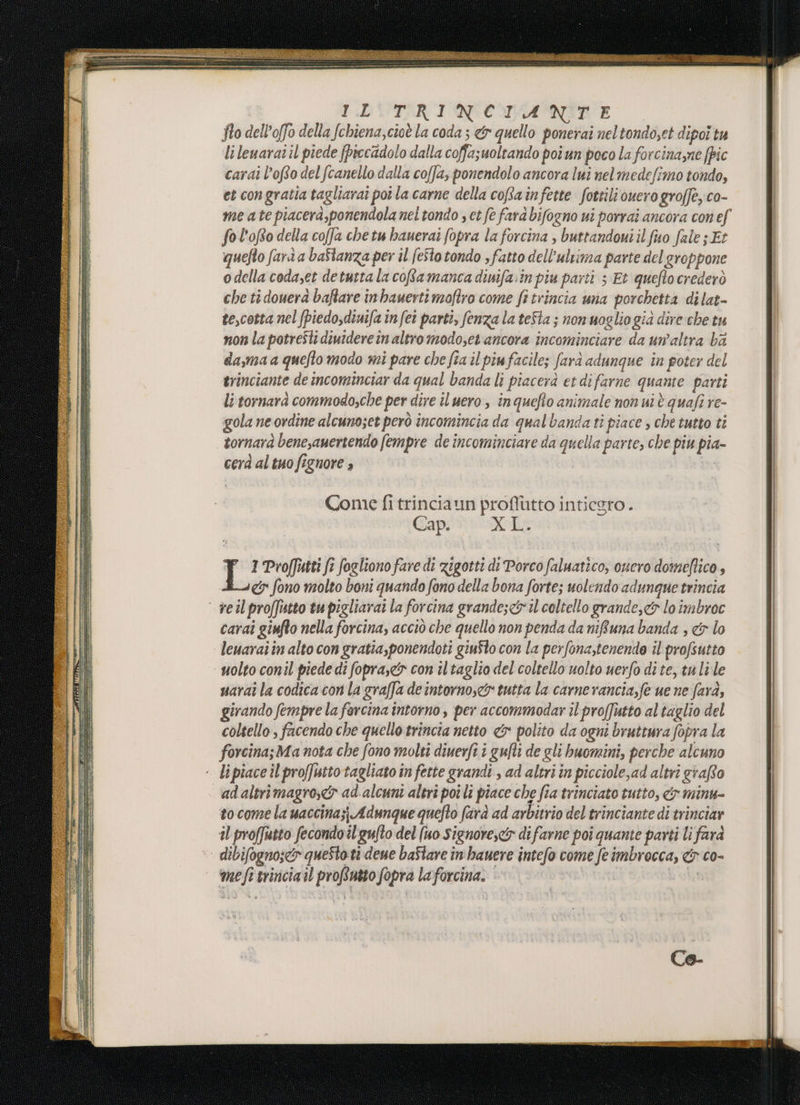 IL TRINCIANTE
ſto dell'oſſo della ſchiena,cioè la coda ; & quello ponerai nel tondo,et dipoi tu
li leuarai il piede ſpiccãdolo dalla coſſa;uoltando poi un poco la forcina,ne ſpic
carai l'oſſo del ſcanello dalla coſſa, ponendolo ancora lui nel medeſimo tondo,
et con gratia tagliarai poi la carne della coſſa in fette ſottili ouero groſſe, co-
me a te piacerà,ponendola nel tondo , et ſe farà biſogno ui porrai ancora con eſ
ſo l'oſſo della coſſa che tu hauerai ſopra la forcina , buttandoui il ſuo ſale ; Et
queſto farà a baſtanza per il ſeſto tondo , fatto dell'ultima parte del groppone
o della coda,et de tutta la coſſa manca diuiſa in piu parti ; Et queſto crederò
che ti douerà baſtare in hauerti moſtro come ſi trincia una porchetta di lat-
te,cotta nel ſpiedo,diuiſa in ſei parti, ſenza la teſta ; non uoglio già dire che tu
non la potreſti diuidere in altro modo,et ancora incominciare da un'altra bã
da,ma a queſto modo mi pare che ſia il piu facile; ſarà adunque in poter del
trinciante de incominciar da qual banda li piacerà et di farne quante parti
li tornarà commodo,che per dire il uero , in queſto animale non ui è quaſi re-
gola ne ordine alcuno;et però incomincia da qual banda ti piace , che tutto ti
tornarà bene,auertendo ſempre de incominciare da quella parte, che piu pia-
cerà al tuo ſignore ,
Come ſi trincia un proſſutto intiegro.
Cap. XL.
I Proſſutti ſi ſogliono fare di zigotti di Porco ſaluatico, ouero domeſtico ,
& ſono molto boni quando ſono della bona ſorte; uolendo adunque trincia
re il proſſutto tu pigliarai la forcina grande;& il coltello grande,& lo imbroc
carai giuſto nella forcina, acciò che quello non penda da niſſuna banda , & lo
leuarai in alto con gratia,ponendoti giuſto con la perſona,tenendo il proſsutto
uolto con il piede di ſopra,& con il taglio del coltello uolto uerſo di te, tu li le
uarai la codica con la graſſa de intorno,& tutta la carne rancia,ſe ue ne ſarà,
girando ſempre la forcina intorno , per accommodar il proſſutto al taglio del
coltello , facendo che quello trincia netto & polito da ogni bruttura ſopra la
forcina; Ma nota che ſono molti diuerſi i guſti de gli huomini, perche alcuno
li piace il proſſutto tagliato in fette grandi , ad altri in picciole,ad altri graſſo
ad altri magro,& ad alcuni altri poi li piace che ſia trinciato tutto, & minu-
to come la uaccina; Adunque queſto ſarà ad arbitrio del trinciante di trinciar
il proſſutto ſecondo il guſto del ſuo Signore,& di farne poi quante parti li farà
di biſogno;& queſto ti deue baſtare in hauere inteſo come ſe imbrocca, & co-
me ſi trincia il proſſutto ſopra la forcina.
Co-